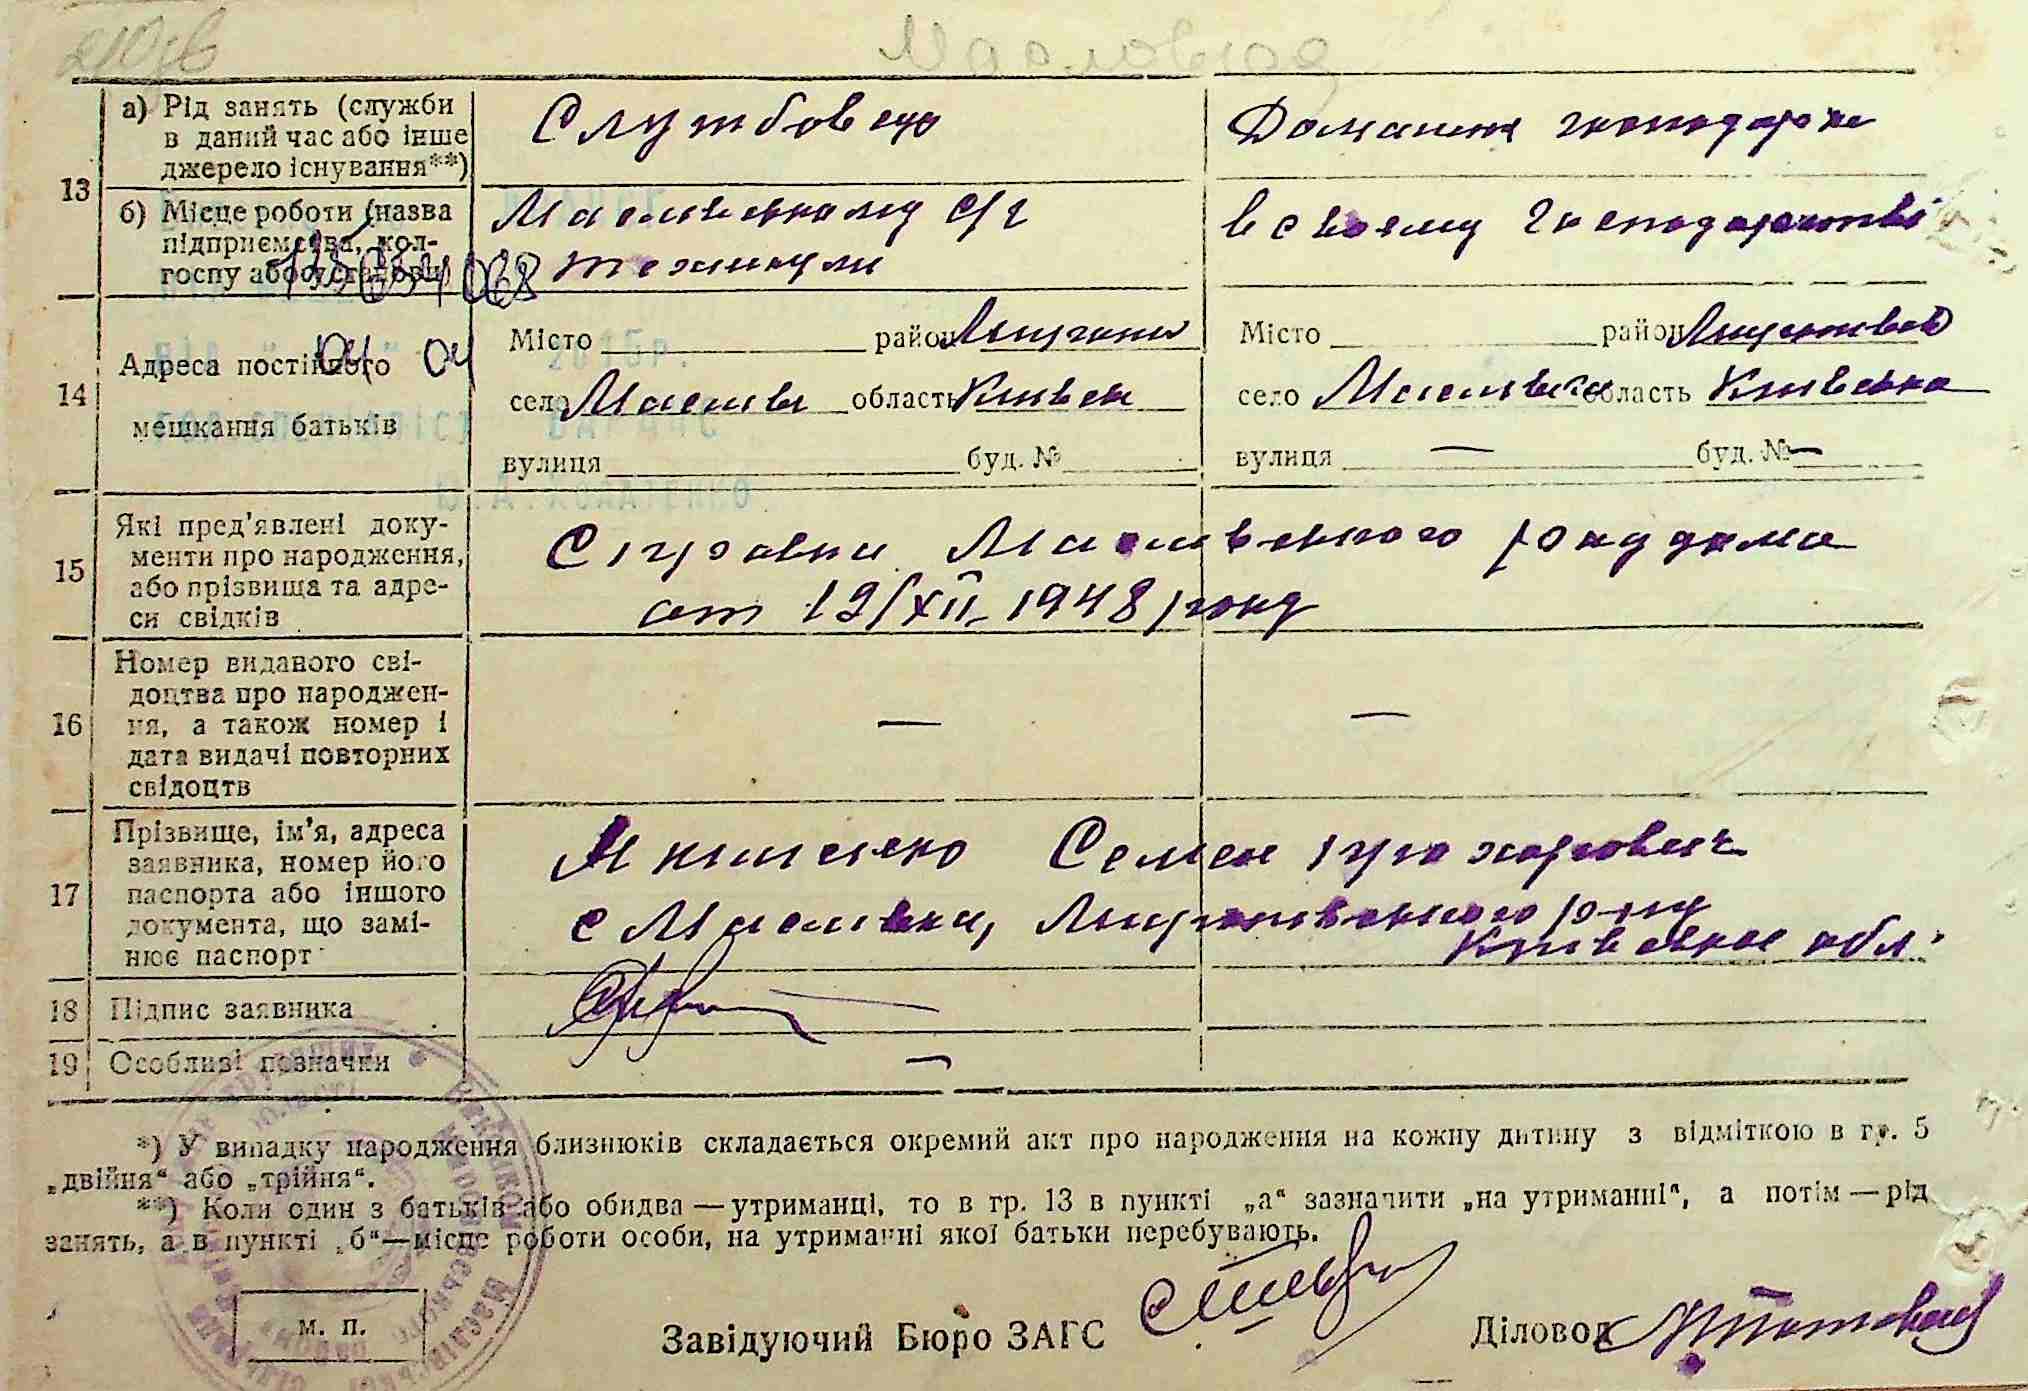 13
а) Рід занять (служби
в даний час або інше
джерело існування**)
Службовец
Домашня господарка
б) Місце роботи (назва
підприємства, кол-
госпу або установи)
Маслівському с/г
технікумі
в своєму господарстві
14
Адреса постійного
мешкання батьків
04 04
Місто район
село Маслівка область Київськ
вулиця буд. №
Місто район
село Маслівка область Київська
вулиця — буд. № —
15
Які пред'явлені доку-
менти про народження,
або прізвища та адре-
си свідків
Справка Маслівского роддома
от 12/XII, 1948 року
16
Номер виданого сві-
доцтва про народжен-
ня, а також номер і
дата видачі повторних
свідоцтв
— —
17
Прізвище, ім'я, адреса
заявника, номер його
паспорта або іншого
документа, що замі-
нює паспорт
Семен Прохорович
с Маслівка, Миронівського р-ну
Київської обл.
18 Підпис заявника
19 Особливі позначки —
*) У випадку народження близнюків складається окремий акт про народження на кожну дитину з відміткою в гр. 5
„двійня“ або „трійня“.
**) Коли один з батьків або обидва — утриманці, то в гр. 13 в пункті „а“ зазначити „на утриманні“, а потім — рід
занять, а в пункті „б“—місце роботи особи, на утриманні якої батьки перебувають.
м. п.
Завідуючий Бюро ЗАГС
Діловод